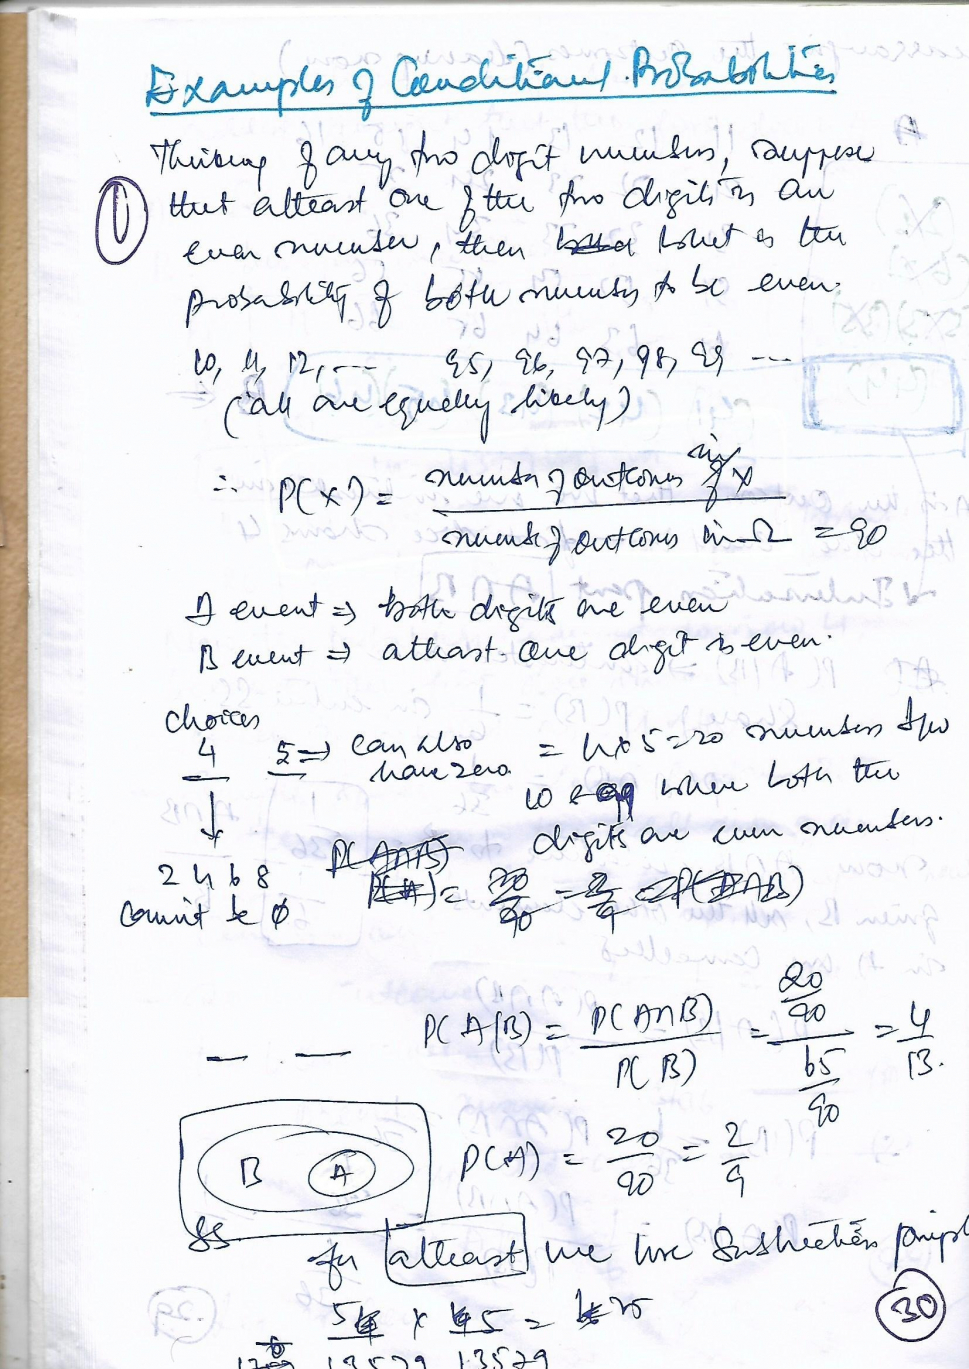 Examples of Conditional Probabilities
Thinking of any two digit numbers, suppose
① that atleast one of the two digits is an
even number, then what is the
probability of both numbers to be even.
10, 11, 12, ---- 95, 96, 97, 98, 99 ---
(all are equally likely)
∴ P(X) = number of outcomes in X / number of outcomes in Ω = 90
A event ⇒ both digits are even
B event ⇒ atleast one digit is even.
choices
4 5 ⇒ can also have zero. = 4x5=20 numbers from
10 & 99 where both the
digits are even numbers.
↓
2 4 6 8
cannot be ∅
P(A∩B)
P(A) = 20/90 = 2/9 = P(A∩B)
P(A|B) = P(A∩B) / P(B) = 20/90 / 65/90 = 4/13.
B A
P(A) = 20/90 = 2/9
SS.
for atleast we use Subtraction
5 x 5 = 25
13579 13579
30